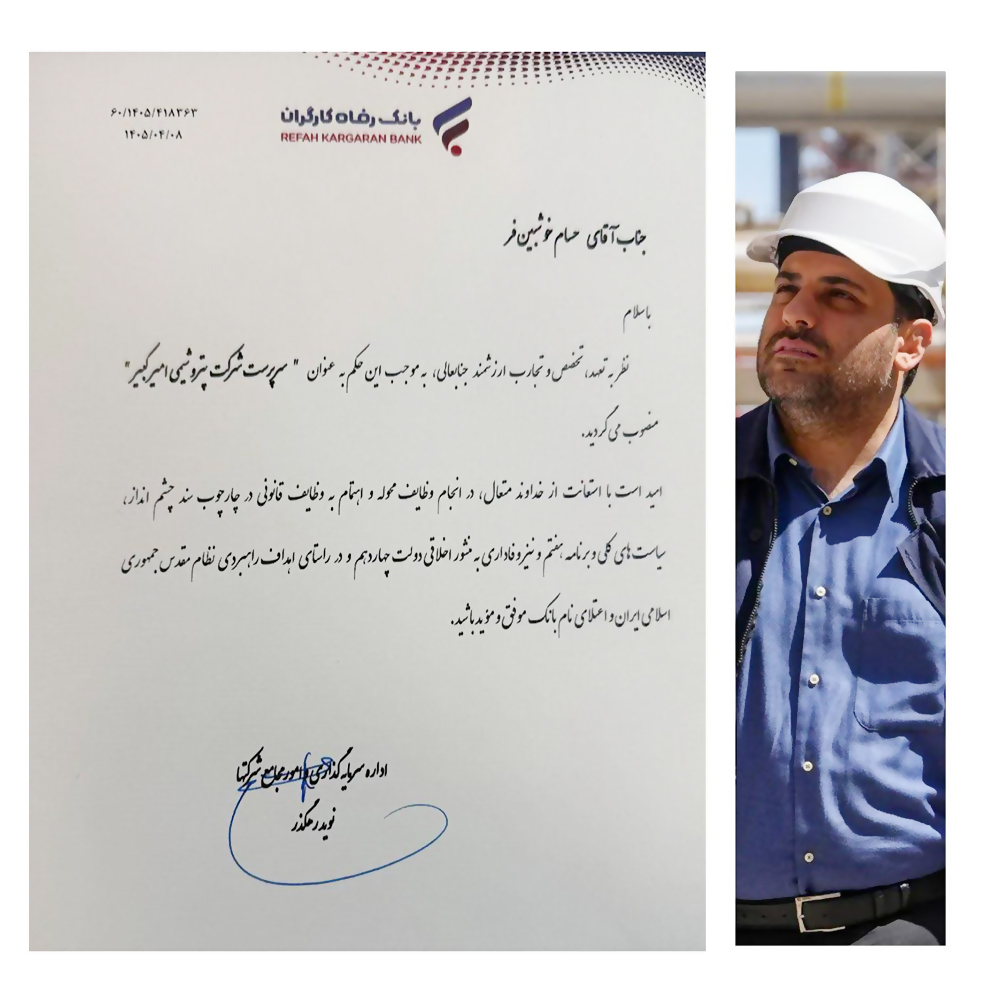 ۶۰/۱۴۰۵/۴۱۸۳۶۳
۱۴۰۵/۰۴/۰۸
بانک رفاه کارگران
REFAH KARGARAN BANK
جناب آقای حسام خوشبین فر
باسلام
نظر به تعهد، تخصص و تجارب ارزشمند جنابعالی، به موجب این حکم به عنوان " سرپرست شرکت پتروشیمی امیرکبیر"
منصوب می گردید.
امید است با استعانت از خداوند متعال، در انجام وظایف محوله و اهتمام به وظایف قانونی در چارچوب سند چشم انداز،
سیاست های کلی و برنامه هفتم و نیز وفاداری به منشور اخلاقی دولت چهاردهم و در راستای اهداف راهبردی نظام مقدس جمهوری
اسلامی ایران و اعتلای نام بانک موفق و مؤید باشید.
اداره سرمایه گذاری و امور مجامع شرکتها
نوید رهگذر